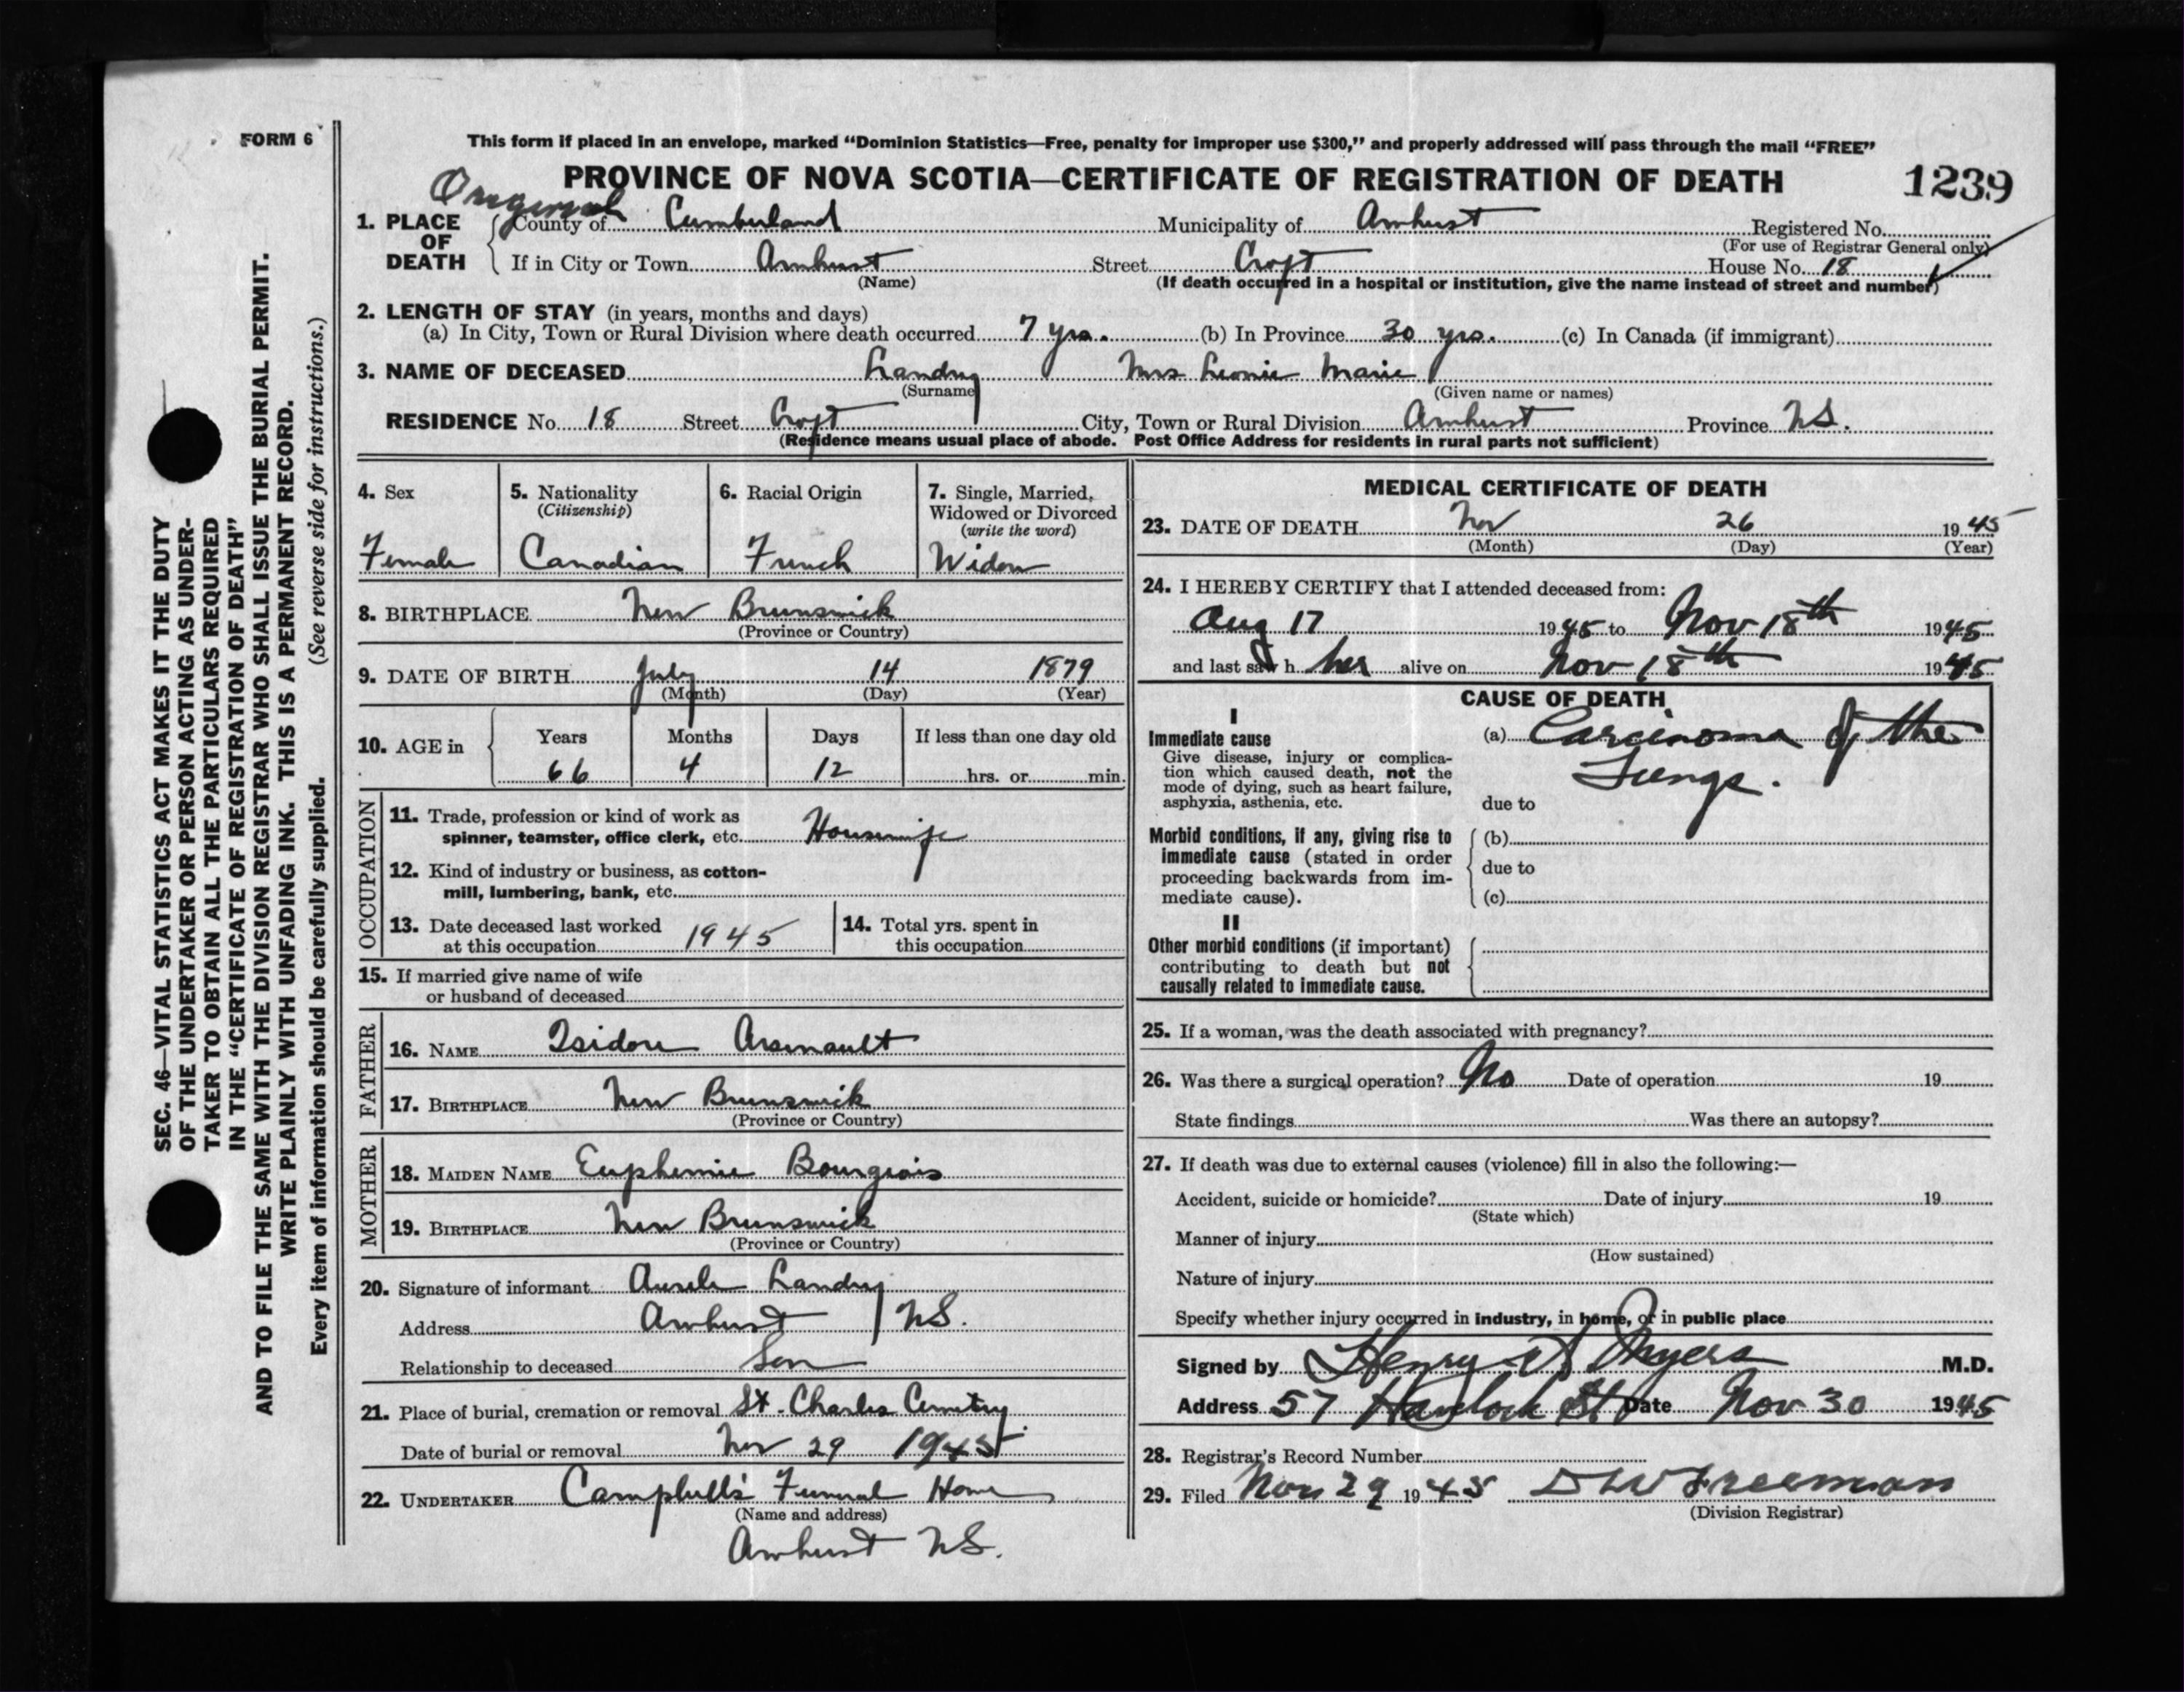 FORM 6
This form if placed in an envelope, marked "Dominion Statistics—Free, penalty for improper use $300," and properly addressed will pass through the mail "FREE"
PROVINCE OF NOVA SCOTIA—CERTIFICATE OF REGISTRATION OF DEATH
1239
Original
1. PLACE OF DEATH
County of Cumberland Municipality of Amherst Registered No.
(For use of Registrar General only)
If in City or Town Amherst Street Croft House No. 18
(Name) (If death occurred in a hospital or institution, give the name instead of street and number)
2. LENGTH OF STAY (in years, months and days)
(a) In City, Town or Rural Division where death occurred 7 yrs. (b) In Province 30 yrs. (c) In Canada (if immigrant)
3. NAME OF DECEASED Landry Mrs Leonie Marie
(Surname) (Given name or names)
RESIDENCE No. 18 Street Croft City, Town or Rural Division Amherst Province N.S.
(Residence means usual place of abode. Post Office Address for residents in rural parts not sufficient)
4. Sex
Female
5. Nationality
(Citizenship)
Canadian
6. Racial Origin
French
7. Single, Married,
Widowed or Divorced
(write the word)
Widow
8. BIRTHPLACE New Brunswick
(Province or Country)
9. DATE OF BIRTH July 14 1879
(Month) (Day) (Year)
10. AGE in Years Months Days If less than one day old
66 4 12 hrs. or min.
OCCUPATION
11. Trade, profession or kind of work as
spinner, teamster, office clerk, etc. Housewife
12. Kind of industry or business, as cotton-
mill, lumbering, bank, etc.
13. Date deceased last worked
at this occupation 1945
14. Total yrs. spent in
this occupation
15. If married give name of wife
or husband of deceased
FATHER
16. NAME Isidore Arsenault
17. BIRTHPLACE New Brunswick
(Province or Country)
MOTHER
18. MAIDEN NAME Euphemie Bourgeois
19. BIRTHPLACE New Brunswick
(Province or Country)
20. Signature of informant Aurele Landry
Address Amherst N.S.
Relationship to deceased Son
21. Place of burial, cremation or removal St. Charles Cemetery
Date of burial or removal Nov 29 1945
22. UNDERTAKER Campbell's Funeral Home
(Name and address)
Amherst N.S.
MEDICAL CERTIFICATE OF DEATH
23. DATE OF DEATH Nov 26 1945
(Month) (Day) (Year)
24. I HEREBY CERTIFY that I attended deceased from:
Aug 17 1945 to Nov 18th 1945
and last saw h her alive on Nov 18th 1945
CAUSE OF DEATH
I
Immediate cause
Give disease, injury or complica-
tion which caused death, not the
mode of dying, such as heart failure,
asphyxia, asthenia, etc.
(a) Carcinoma of the
Lungs.
due to
Morbid conditions, if any, giving rise to
immediate cause (stated in order
proceeding backwards from im-
mediate cause).
(b)
due to
(c)
II
Other morbid conditions (if important)
contributing to death but not
causally related to immediate cause.
25. If a woman, was the death associated with pregnancy?
26. Was there a surgical operation? No Date of operation 19
State findings Was there an autopsy?
27. If death was due to external causes (violence) fill in also the following:—
Accident, suicide or homicide? Date of injury 19
(State which)
Manner of injury
(How sustained)
Nature of injury
Specify whether injury occurred in industry, in home, or in public place
Signed by Henry A Myers M.D.
Address 57 Havelock St Date Nov 30 1945
28. Registrar's Record Number
29. Filed Nov 29 1945 D W Freeman
(Division Registrar)
SEC. 46—VITAL STATISTICS ACT MAKES IT THE DUTY
OF THE UNDERTAKER OR PERSON ACTING AS UNDER-
TAKER TO OBTAIN ALL THE PARTICULARS REQUIRED
IN THE "CERTIFICATE OF REGISTRATION OF DEATH"
AND TO FILE THE SAME WITH THE DIVISION REGISTRAR WHO SHALL ISSUE THE BURIAL PERMIT.
WRITE PLAINLY WITH UNFADING INK. THIS IS A PERMANENT RECORD.
Every item of information should be carefully supplied. (See reverse side for instructions.)